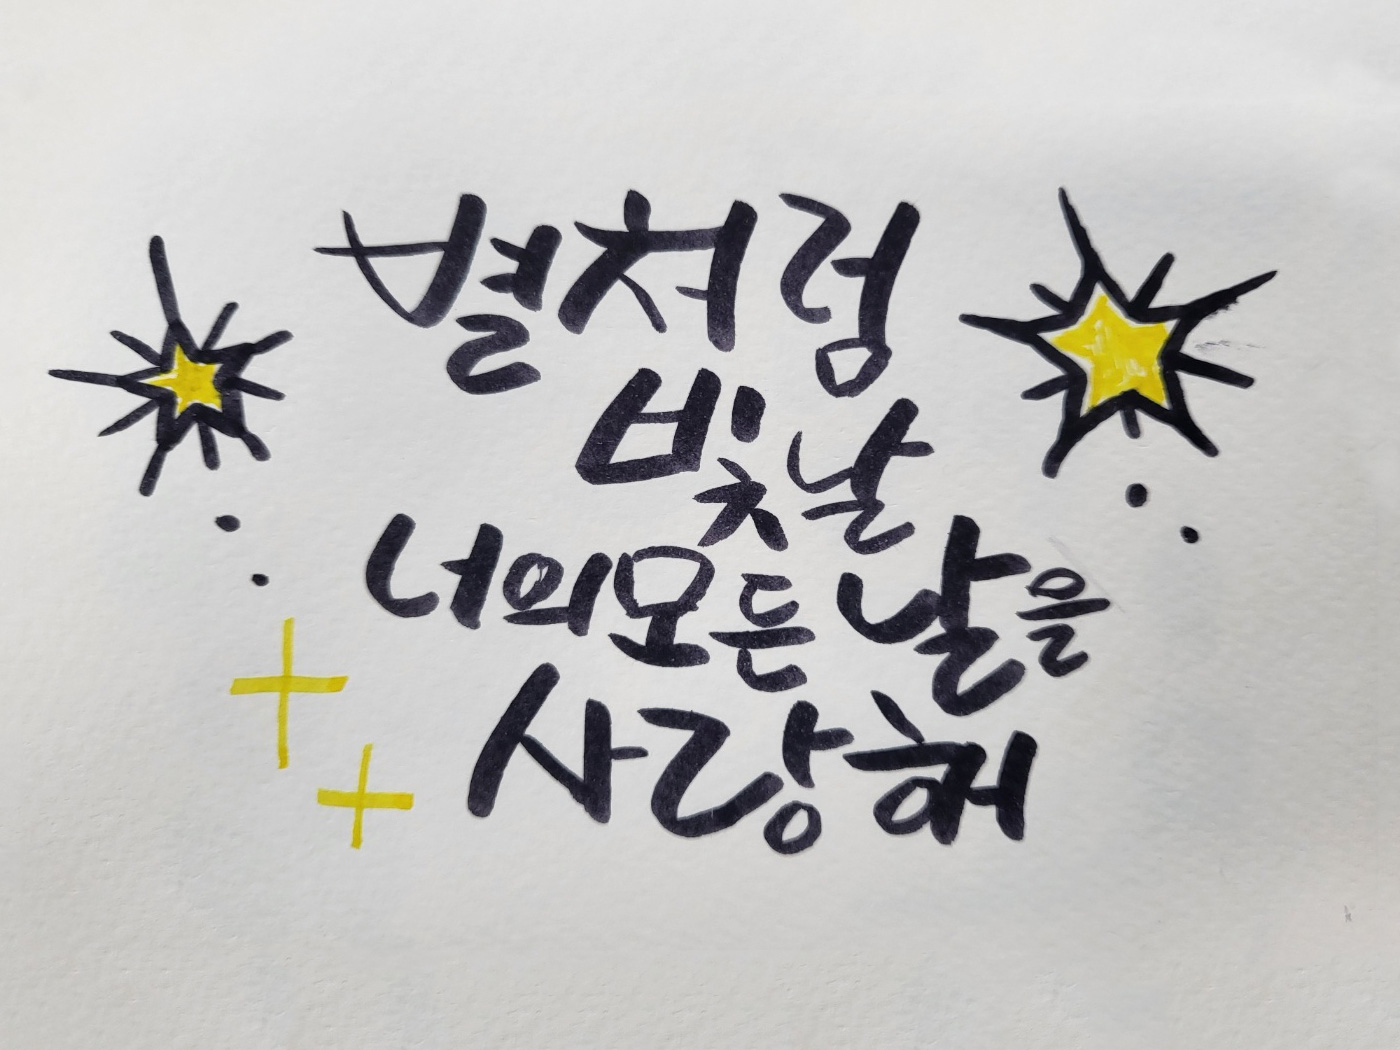 별처럼
빛날
너의모든날을
사랑해